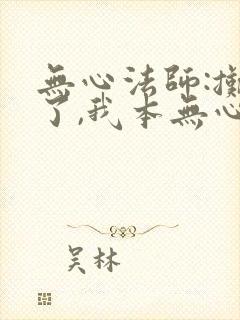 無心法師:
了,我本無心
吴林